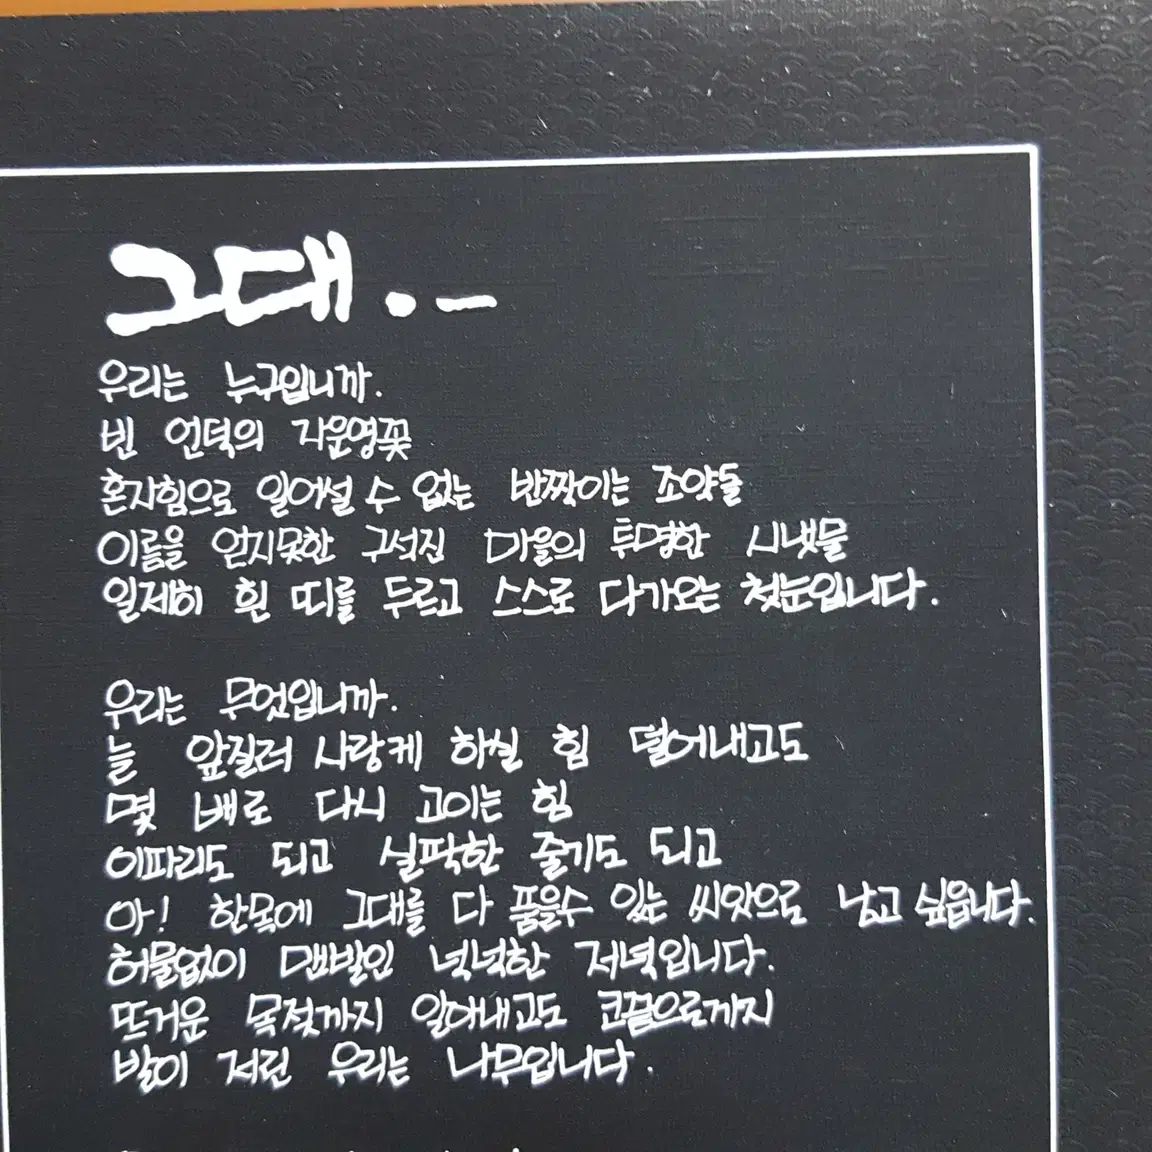 그대. -
우리는 누구입니까.
빈 언덕의 자운영꽃
혼자힘으로 일어설 수 없는 반짝이는 조약돌
이름을 얻지못한 구석진 마을의 투명한 시냇물
일제히 흰 띠를 두르고 스스로 다가오는 첫눈입니다.
우리는 무엇입니까.
늘 앞질러 사랑케 하실 힘 덜어내고도
몇 배로 다시 고이는 힘
이파리도 되고 실팍한 줄기도 되고
아! 한몫에 그대를 다 품을수 있는 씨앗으로 남고 싶습니다.
허물없이 맨발인 넉넉한 저녁입니다.
뜨거운 목젖까지 알아내고도 코끝으로까지
발이 저린 우리는 나무입니다.